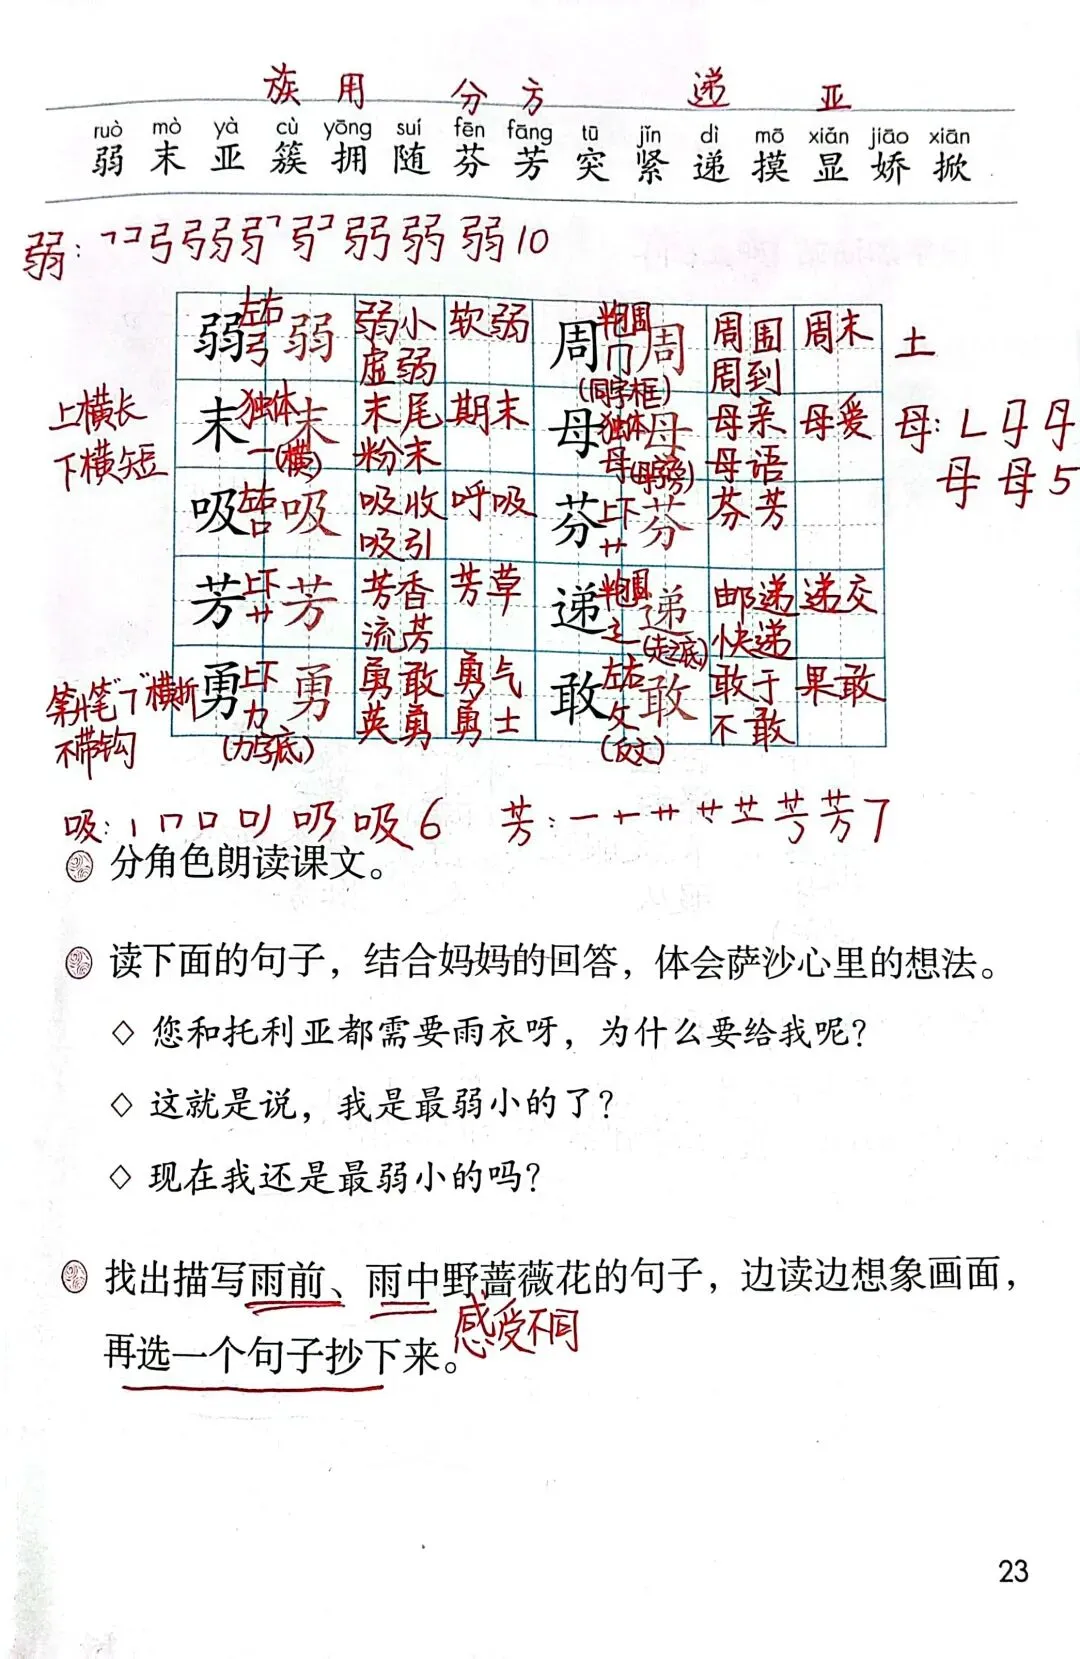 族 用 分 方 递 亚
ruò mò yà cù yōng suí fēn fāng tū jǐn dì mō xiǎn jiāo xiān
弱 末 亚 簇 拥 随 芬 芳 突 紧 递 摸 显 娇 掀
弱: 弓 弱 弱 10
弱 左右 弓 弱 弱小 软弱 周 半包围 冂 周 周围 周末 土
虚弱 (同字框) 周到
上横长 末 独体 末 末尾 期末 母 独体 母 母亲 母爱 母:
下横短 一(横) 粉末 母(母字旁) 母语 母 母 5
吸 左右 口 吸 吸收 呼吸 芬 上下 艹 芬 芬芳
吸引
芳 上下 艹 芳 芳香 芳草 递 半包围 辶 递 邮递 递交
流芳 (走之底) 快递
第4笔"㇆"横折 勇 上下 力 勇 勇敢 勇气 敢 左右 攵 敢 敢于 果敢
不带钩 (力字底) 英勇 勇士 (反文) 不敢
吸: 丨 口 吸 6 芳: 一 十 艹 芳 7
分角色朗读课文。
读下面的句子，结合妈妈的回答，体会萨沙心里的想法。
◇ 您和托利亚都需要雨衣呀，为什么要给我呢？
◇ 这就是说，我是最弱小的了？
◇ 现在我还是最弱小的吗？
找出描写雨前、雨中野蔷薇花的句子，边读边想象画面，
感受不同
再选一个句子抄下来。
23